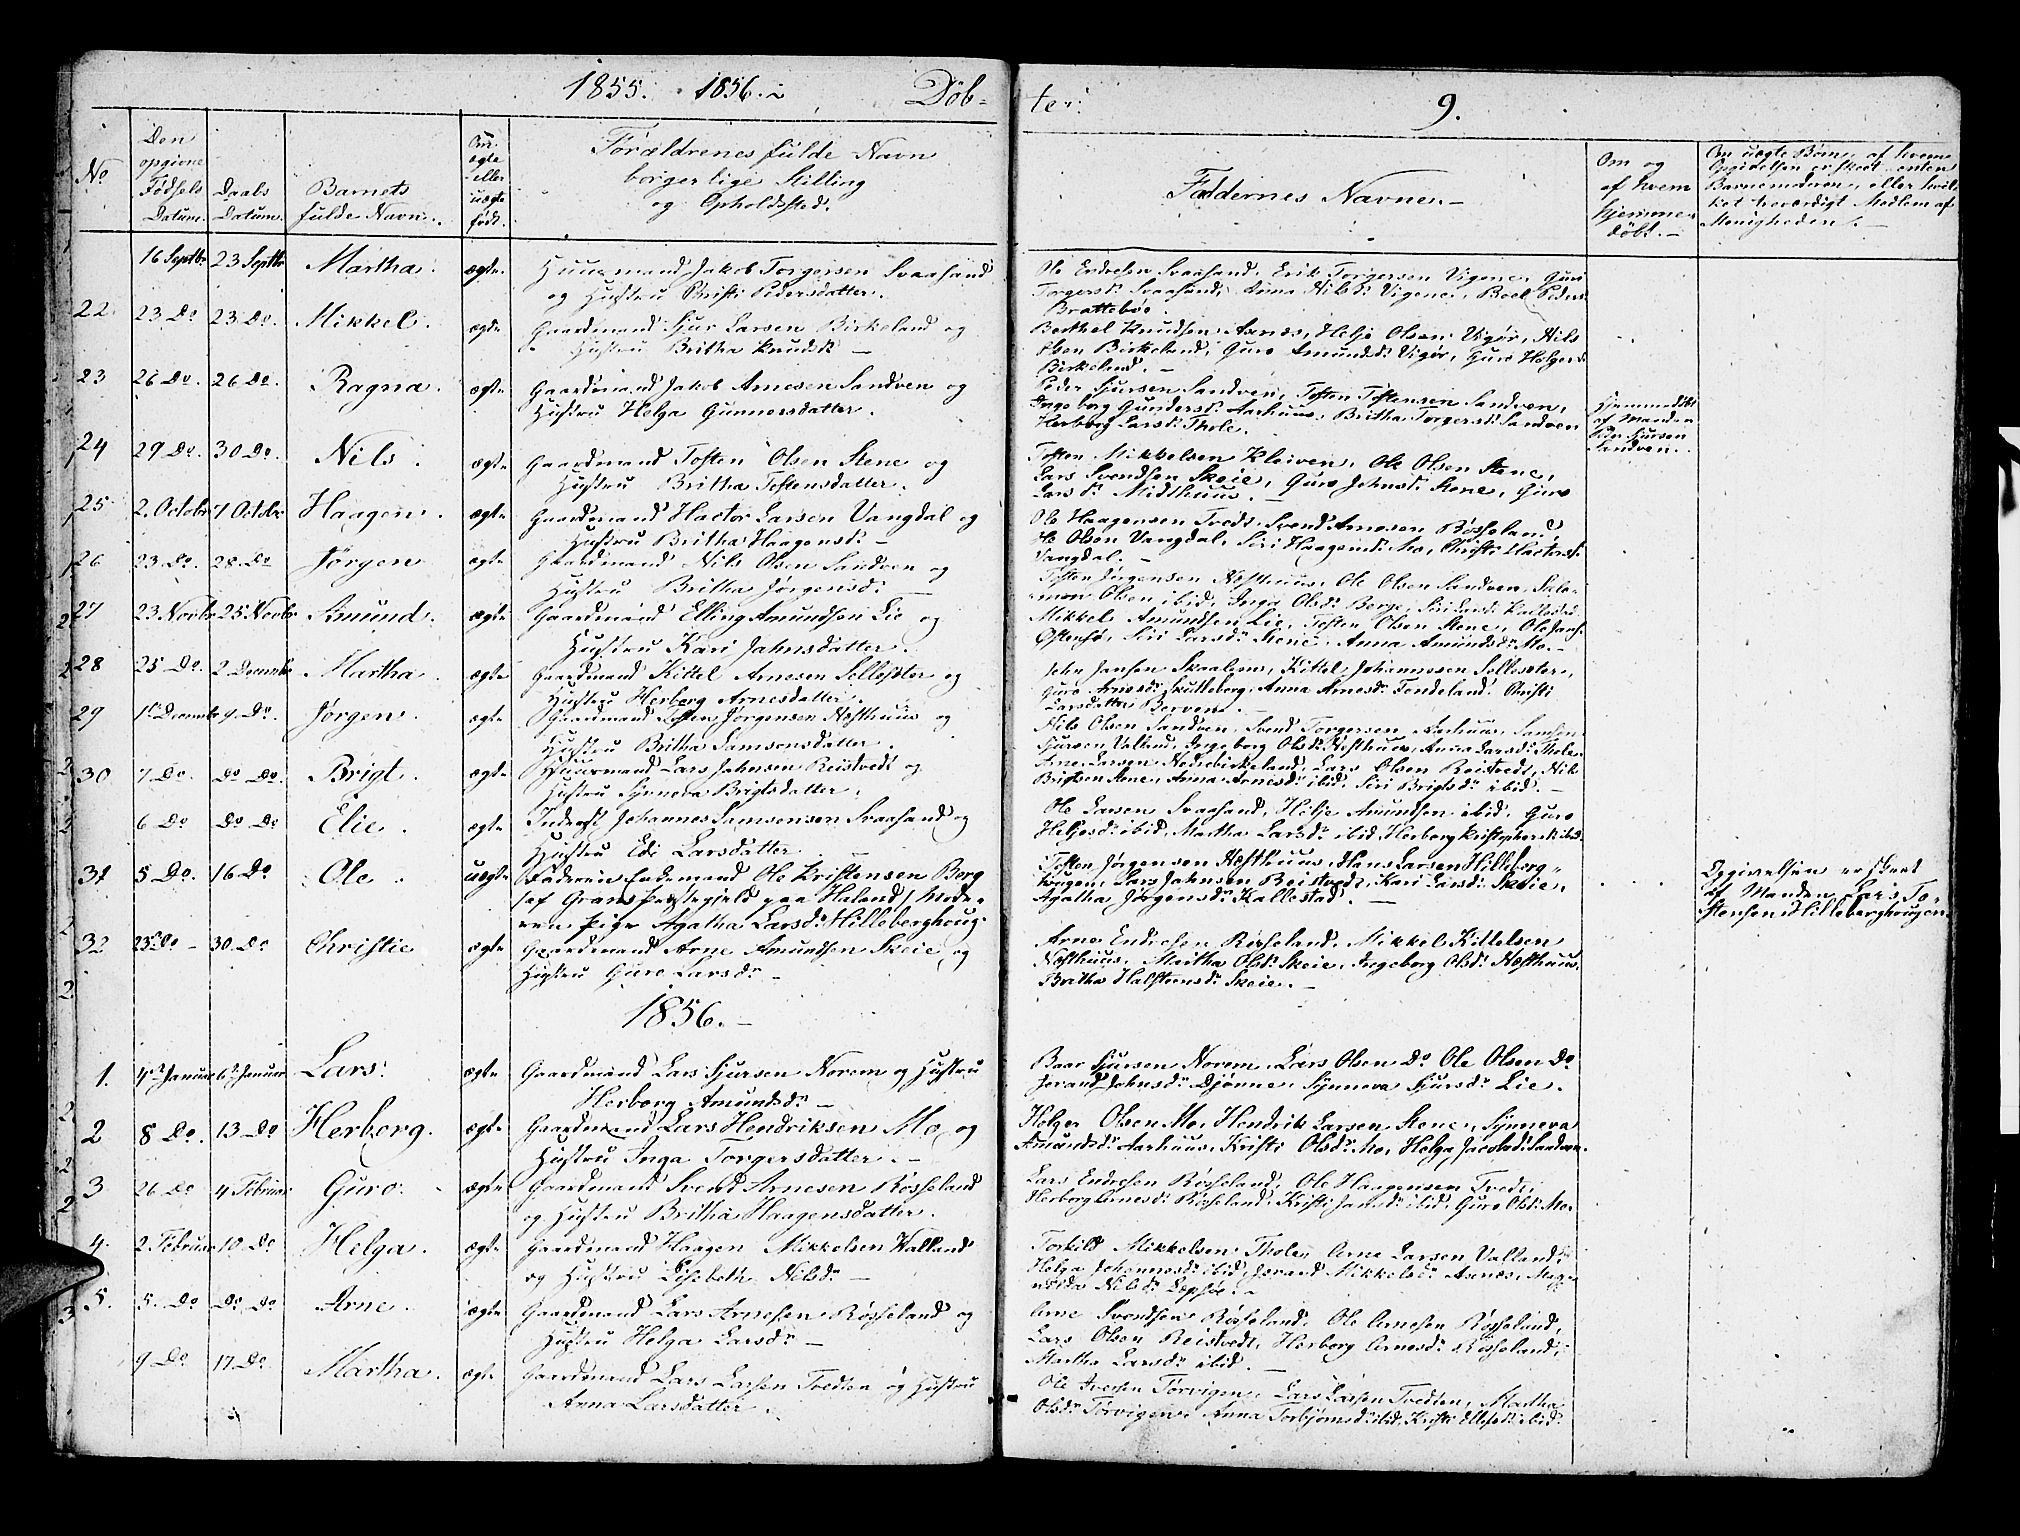 1855. 1856. Döb-
ter. 9.
No
Den opgivne Fødsels Datum.
Daabs Datum.
Barnets fulde Navn.
Om ægte eller uægte født.
Forældrenes fulde Navn borgerlige Stilling og Opholdssted.
Faddernes Navne.
Om og af hvem hjemmedöbt.
Om uægte Børn, af hvem Opgivelsen er skeet enten Barnemoderen, eller hvilket troværdigt Medlem af Menigheden.
16 Septbr 23 Septbr Martha. ægte. Huusmand Jakob Torgersen Svaasand
og Hustru Kristi Pedersdatter.
Ole Endresen Svaasand, Erik Torgersen Vigene, Guri
Torgersd: Svaasand, Anna Nilsd: Vigene, Boel Peders
Brattebøe.
22. 23 Do 23 Do. Mikkel. ægte Gaardmand Sjur Larsen Birkeland og
Hustru Britha Knudsd:
Berthel Knudsen Axnæs, Helje Olsen Vigør, Nils
Olsen Birkeland, Guro Amundsd: Vigør, Guro Holgersd:
Birkeland.
23 26 Do. 26 Do. Ragna. ægte Gaardmand Jakob Arnesen Sandven og
Hustru Helga Gunnersdatter.
Peder Sjursen Sandven, Tosten Tostensen Sandven,
Ingeborg Gundersd: Aarhuus, Britha Torgersd: Sandven
Herborg Larsd: Thole.
Hjemmedöbt
af Manden
Peder Sjursen
Sandven.
24 29 Do. 30 Do. Nils. ægte Gaardmand Tosten Olsen Stene og
Hustru Britha Tostensdatter.
Tosten Mikkelsen Kleiven, Ole Olsen Stene,
Lars Svendsen Skeie, Guro Johnsd: Stene, Guro
Larsd: Midthuus.
25 2. Octobr 7 Octobr Haagen. ægte Gaardmand Hactor Larsen Vangdal og
Hustru Britha Haagensd:
Ole Haagensen Tvedt, Svend Arnesen Røsseland,
Ole Olsen Vangdal, Siri Haagensd: Mo, Christi Hactorsd:
Vangdal.
26 23. Do. 28. Do Jørgen ægte Gaardmand Nils Olsen Sandven og
Hustru Britha Jørgensd:
Tosten Jørgensen Næsthuus, Ole Olsen Sandven, Salo-
mon Olsen ibid, Inga Olsd: Berje, Siri Larsd: Kallestad.
27 23 Novbr 25 Novbr Amund. ægte Gaardmand Elling Amundsen Lie og
Hustru Kari Jahnsdatter.
Mikkel Amundsen Lie, Tosten Olsen Stene, Ole Jans.
Östensö, Siri Larsd: Stene, Anna Amundsd: Mo.
28 25 Do. 2 Decembr Martha. ægte Gaardmand Kittel Arnesen Sellesæter og
Hustru Herborg Arnesdatter.
John Jansen Skaalium, Kittel Johannesen Sellesæter,
Guro Arnesd: Skutleberg, Anna Arnesd: Tondeland. Christi
Larsdatter Berven.
29 1ste Decembr 9. Do. Jørgen. ægte Gaardmand Tosten Jørgensen Næsthuus og
Hustru Britha Samsonsdatter.
Nils Olsen Sandven, Svend Torgersen Aarhuus, Samson
Sjursen Valland, Ingeborg Olsd: Næsthuus, Anna Larsd: Thole.
30 7. Do. Do Do. Brigt. ægte Huusmand Lars Jahnsen Reistvedt og
Hustru Synneva Brigtsdatter.
Arne Larsen Nedrebirkeland, Lars Olsen Reistvedt, Nils
Brigtsen Stene, Anna Arnesd: ibid, Siri Brigtsd: ibid.
6 Do Do Do Elie. ægte Inderst Johannes Samsonsen Svaasand og
Hustru Edi Larsdatter
Ole Larsen Svaasand, Helje Amundsen ibid, Guro
Heljesd: ibid, Martha Larsd: ibid, Herborg Kristophersd: ibid.
31 5 Do. 16 Do Ole. uægte Faderen Enkemand Ole Kristensen Berg
/af Grans Præstegjeld paa Haland/ Mode-
ren Pige Agatha Larsd: Hilleberghoug.
Tosten Jørgensen Næsthuus, Hans Larsen Hilleberg-
hougen, Lars Jahnsen Reistvedt, Kari Larsd: Skeie,
Agatha Jørgensd: Kallestad.
Opgivelsen er skeet
af Manden Lars To-
stensen Hilleberghougen
32 23de Do 30. Do Christie ægte Gaardmand Arne Amundsen Skeie og
Hustru Guro Larsd:
Arne Endresen Røsseland, Mikkel Kittelsen
Næsthuus, Martha Olsd: Skeie, Ingeborg Olsd: Næsthuus,
Britha Halsteensd: Skeie.
1856.
1. 4de Januar 6te Januar Lars. ægte Gaardmand Lars Sjursen Norem og Hustru
Herborg Amundsd:
Baar Sjursen Norem, Lars Olsen Do Ole Olsen Do
Jorand Johnsd: Djønne, Synneva Sjursd: Lie.
2 8 Do. 13 Do Herborg. ægte Gaardmand Lars Hendriksen Mo og
Hustru Inga Torgersdatter.
Holger Olsen Mo, Hendrik Larsen Stene, Synneva
Amundsd: Aarhuus, Kristi Olsd: Mo, Helga Jacobsd: Sandven.
3 26 Do 4 Februar Guro. ægte Gaardmand Svend Arnesen Røsseland
og Hustru Britha Haagensdatter.
Lars Endresen Røsseland, Ole Haagensen Tvedt,
Herborg Arnesd: Røsseland, Kristi Jansd: ibid, Guro Olsd: Mo.
4. 2 Februar 10. Do Helga. ægte Gaardmand Haagen Mikkelsen Valland
og Hustru Lisebeth Nilsd:
Torkild Mikkelsen Thole, Arne Larsen Valland,
Helga Johannesd: ibid, Jorand Mikkelsd: Axnæs, Mag-
nilda Nilsd: Lepsöe.
5. 5. Do Do Do Arne. ægte Gaardmand Lars Arnesen Røsseland og
Hustru Helga Larsd:
Arne Svendsen Røsseland, Ole Arnesen Røsseland,
Lars Olsen Reistvedt, Herborg Arnesd: Røsseland,
Martha Larsd: ibid.
9 Do 17. Do. Martha. ægte Gaardmand Lars Larsen Tvedten og Hustru
Anna Larsdatter.
Ole Iversen Torvigen, Lars Larsen Tvedten, Martha
Olsd: Torvigen, Anna Torbjørnsd: ibid, Kristi Ellefsd: ibid.